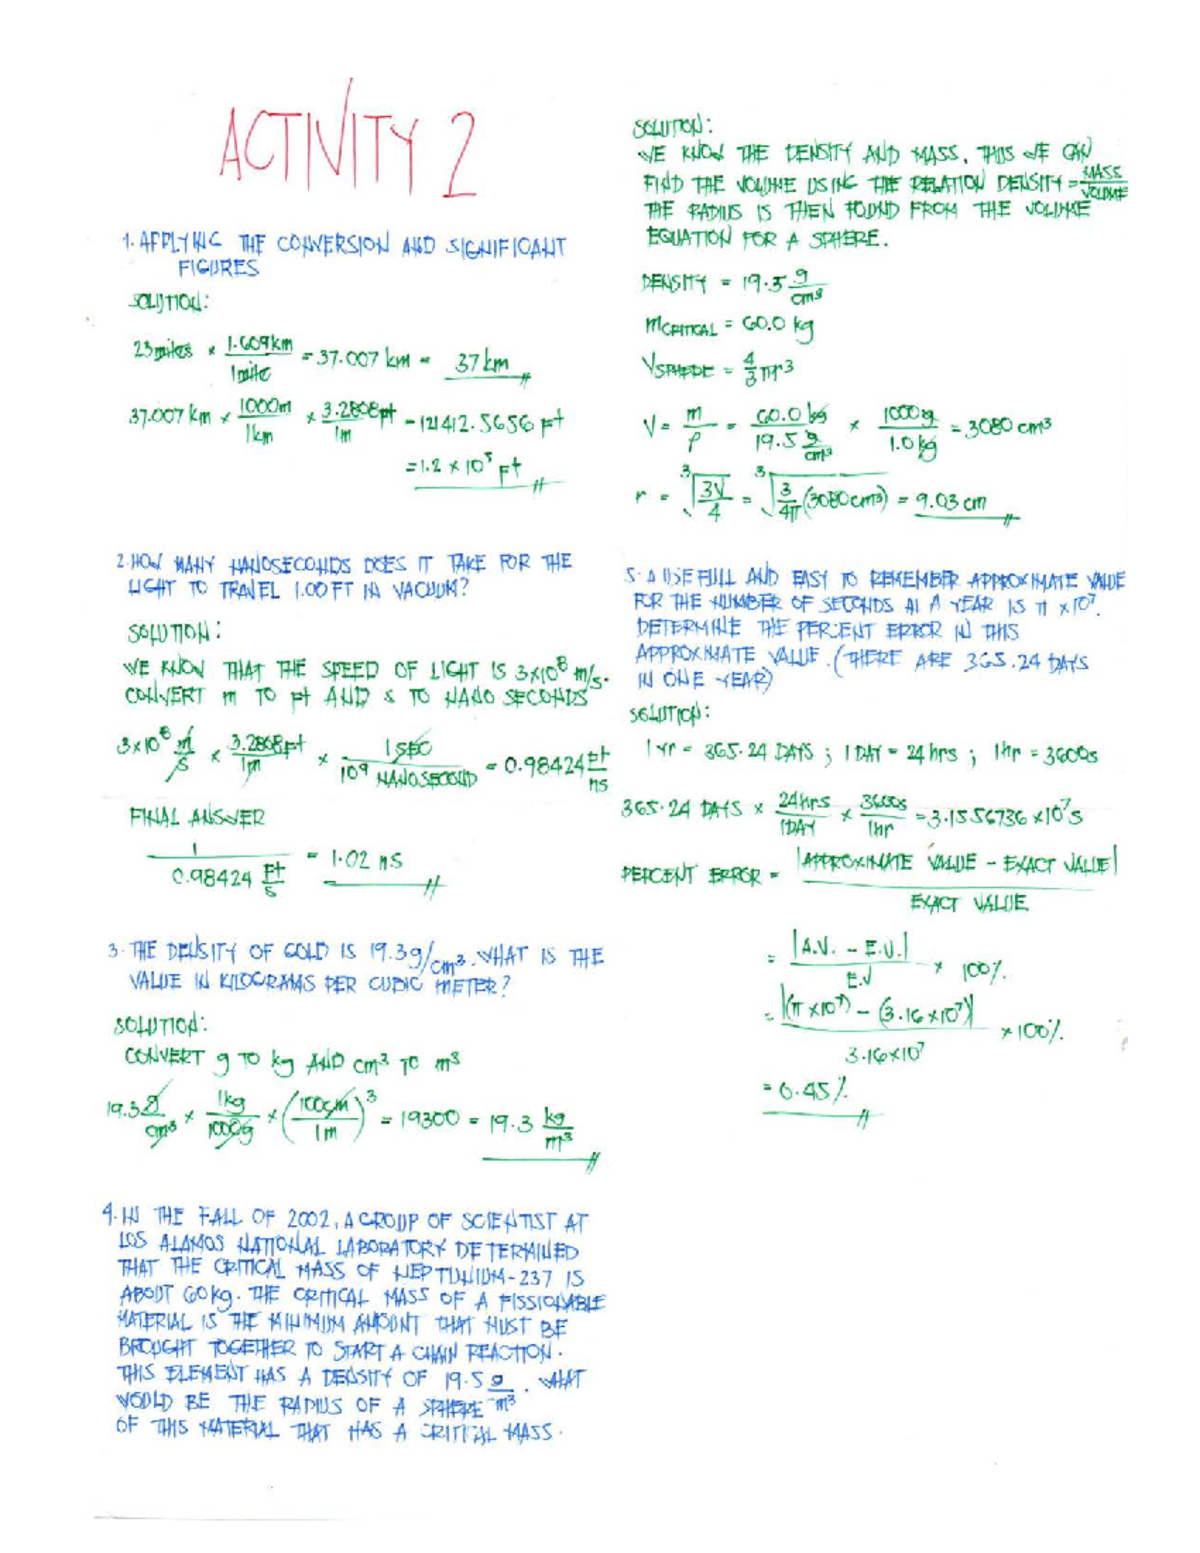 ACTIVITY 2
1. APPLYING THE CONVERSION AND SIGNIFICANT
FIGURES
SOLUTION:
23 miles × 1.609km / 1 mile = 37.007 km = 37 km
37.007 km × 1000m / 1km × 3.2808ft / 1m = 121412.5656 ft
= 1.2 × 10⁵ ft
2. HOW MANY NANOSECONDS DOES IT TAKE FOR THE
LIGHT TO TRAVEL 1.00 FT IN VACUUM?
SOLUTION:
WE KNOW THAT THE SPEED OF LIGHT IS 3×10⁸ m/s.
CONVERT m TO ft AND s TO NANO SECONDS
3×10⁸ m/s × 3.2808ft / 1m × 1 SEC / 10⁹ NANOSECOND = 0.98424 ft/ns
FINAL ANSWER
1 / 0.98424 ft/s = 1.02 ns
3. THE DENSITY OF GOLD IS 19.3g/cm³. WHAT IS THE
VALUE IN KILOGRAMS PER CUBIC METER?
SOLUTION:
CONVERT g TO kg AND cm³ TO m³
19.3 g/cm³ × 1kg / 1000g × (100cm / 1m)³ = 19300 = 19.3 kg/m³
4. IN THE FALL OF 2002, A GROUP OF SCIENTIST AT
LOS ALAMOS NATIONAL LABORATORY DETERMINED
THAT THE CRITICAL MASS OF NEPTUNIUM-237 IS
ABOUT 60kg. THE CRITICAL MASS OF A FISSIONABLE
MATERIAL IS THE MINIMUM AMOUNT THAT MUST BE
BROUGHT TOGETHER TO START A CHAIN REACTION.
THIS ELEMENT HAS A DENSITY OF 19.5 g/m³. WHAT
WOULD BE THE RADIUS OF A SPHERE
OF THIS MATERIAL THAT HAS A CRITICAL MASS.
SOLUTION:
WE KNOW THE DENSITY AND MASS, THUS WE CAN
FIND THE VOLUME USING THE RELATION DENSITY = MASS / VOLUME
THE RADIUS IS THEN FOUND FROM THE VOLUME
EQUATION FOR A SPHERE.
DENSITY = 19.5 g/cm³
mCRITICAL = 60.0 kg
VSPHERE = 4/3 πr³
V = m/ρ = 60.0 kg / 19.5 g/cm³ × 1000g / 1.0 kg = 3080 cm³
r = ³√(3V/4) = ³√(3/4π (3080cm³)) = 9.03 cm
5. A USEFULL AND EASY TO REMEMBER APPROXIMATE VALUE
FOR THE NUMBER OF SECONDS AI A YEAR IS π ×10⁷.
DETERMINE THE PERCENT ERROR IN THIS
APPROXIMATE VALUE. (THERE ARE 365.24 DAYS
IN ONE YEAR)
SOLUTION:
1 yr = 365.24 DAYS ; 1 DAY = 24 hrs ; 1hr = 3600s
365.24 DAYS × 24hrs / 1DAY × 3600s / 1hr = 3.1556736 ×10⁷s
PERCENT ERROR = |APPROXIMATE VALUE - EXACT VALUE| / EXACT VALUE
= |A.V. - E.V.| / E.V × 100%
= |(π ×10⁷) - (3.16 ×10⁷)| / 3.16×10⁷ ×100%
= 0.45%